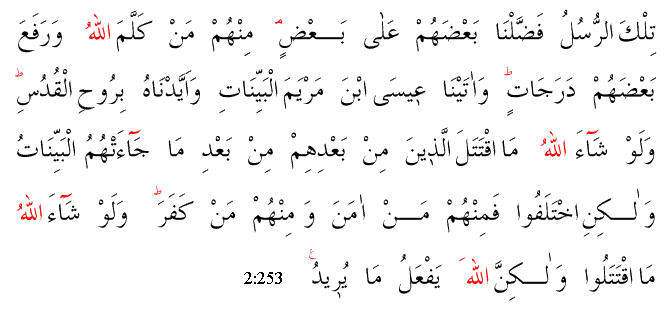 تِلْكَ الرُّسُلُ فَضَّلْنَا بَعْضَهُمْ عَلٰى بَـــعْضٍۘ مِنْهُمْ مَنْ كَلَّمَ اللّٰهُ وَرَفَعَ
بَعْضَهُمْ دَرَجَاتٍۜ وَاٰتَيْنَا عٖيسَى ابْنَ مَرْيَمَ الْبَيِّنَاتِ وَاَيَّدْنَاهُ بِرُوحِ الْقُدُسِۜ
وَلَوْ شَٓاءَ اللّٰهُ مَا اقْتَتَلَ الَّذٖينَ مِنْ بَعْدِهِمْ مِنْ بَعْدِ مَا جَٓاءَتْهُمُ الْبَيِّنَاتُ
وَلٰـــكِنِ اخْتَلَفُوا فَمِنْهُمْ مَـــنْ اٰمَنَ وَمِنْهُمْ مَنْ كَفَرَۜ وَلَوْ شَٓاءَ اللّٰهُ
مَا اقْتَتَلُوا وَلٰـــكِنَّ اللّٰهَ يَفْعَلُ مَا يُرٖيدُࣖ 2:253